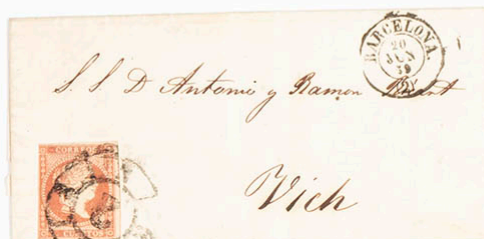 BARCELONA.
20
JUN
59
(2)
S. S. D Antonio y Ramon
Vich
CORREOS
CUARTOS